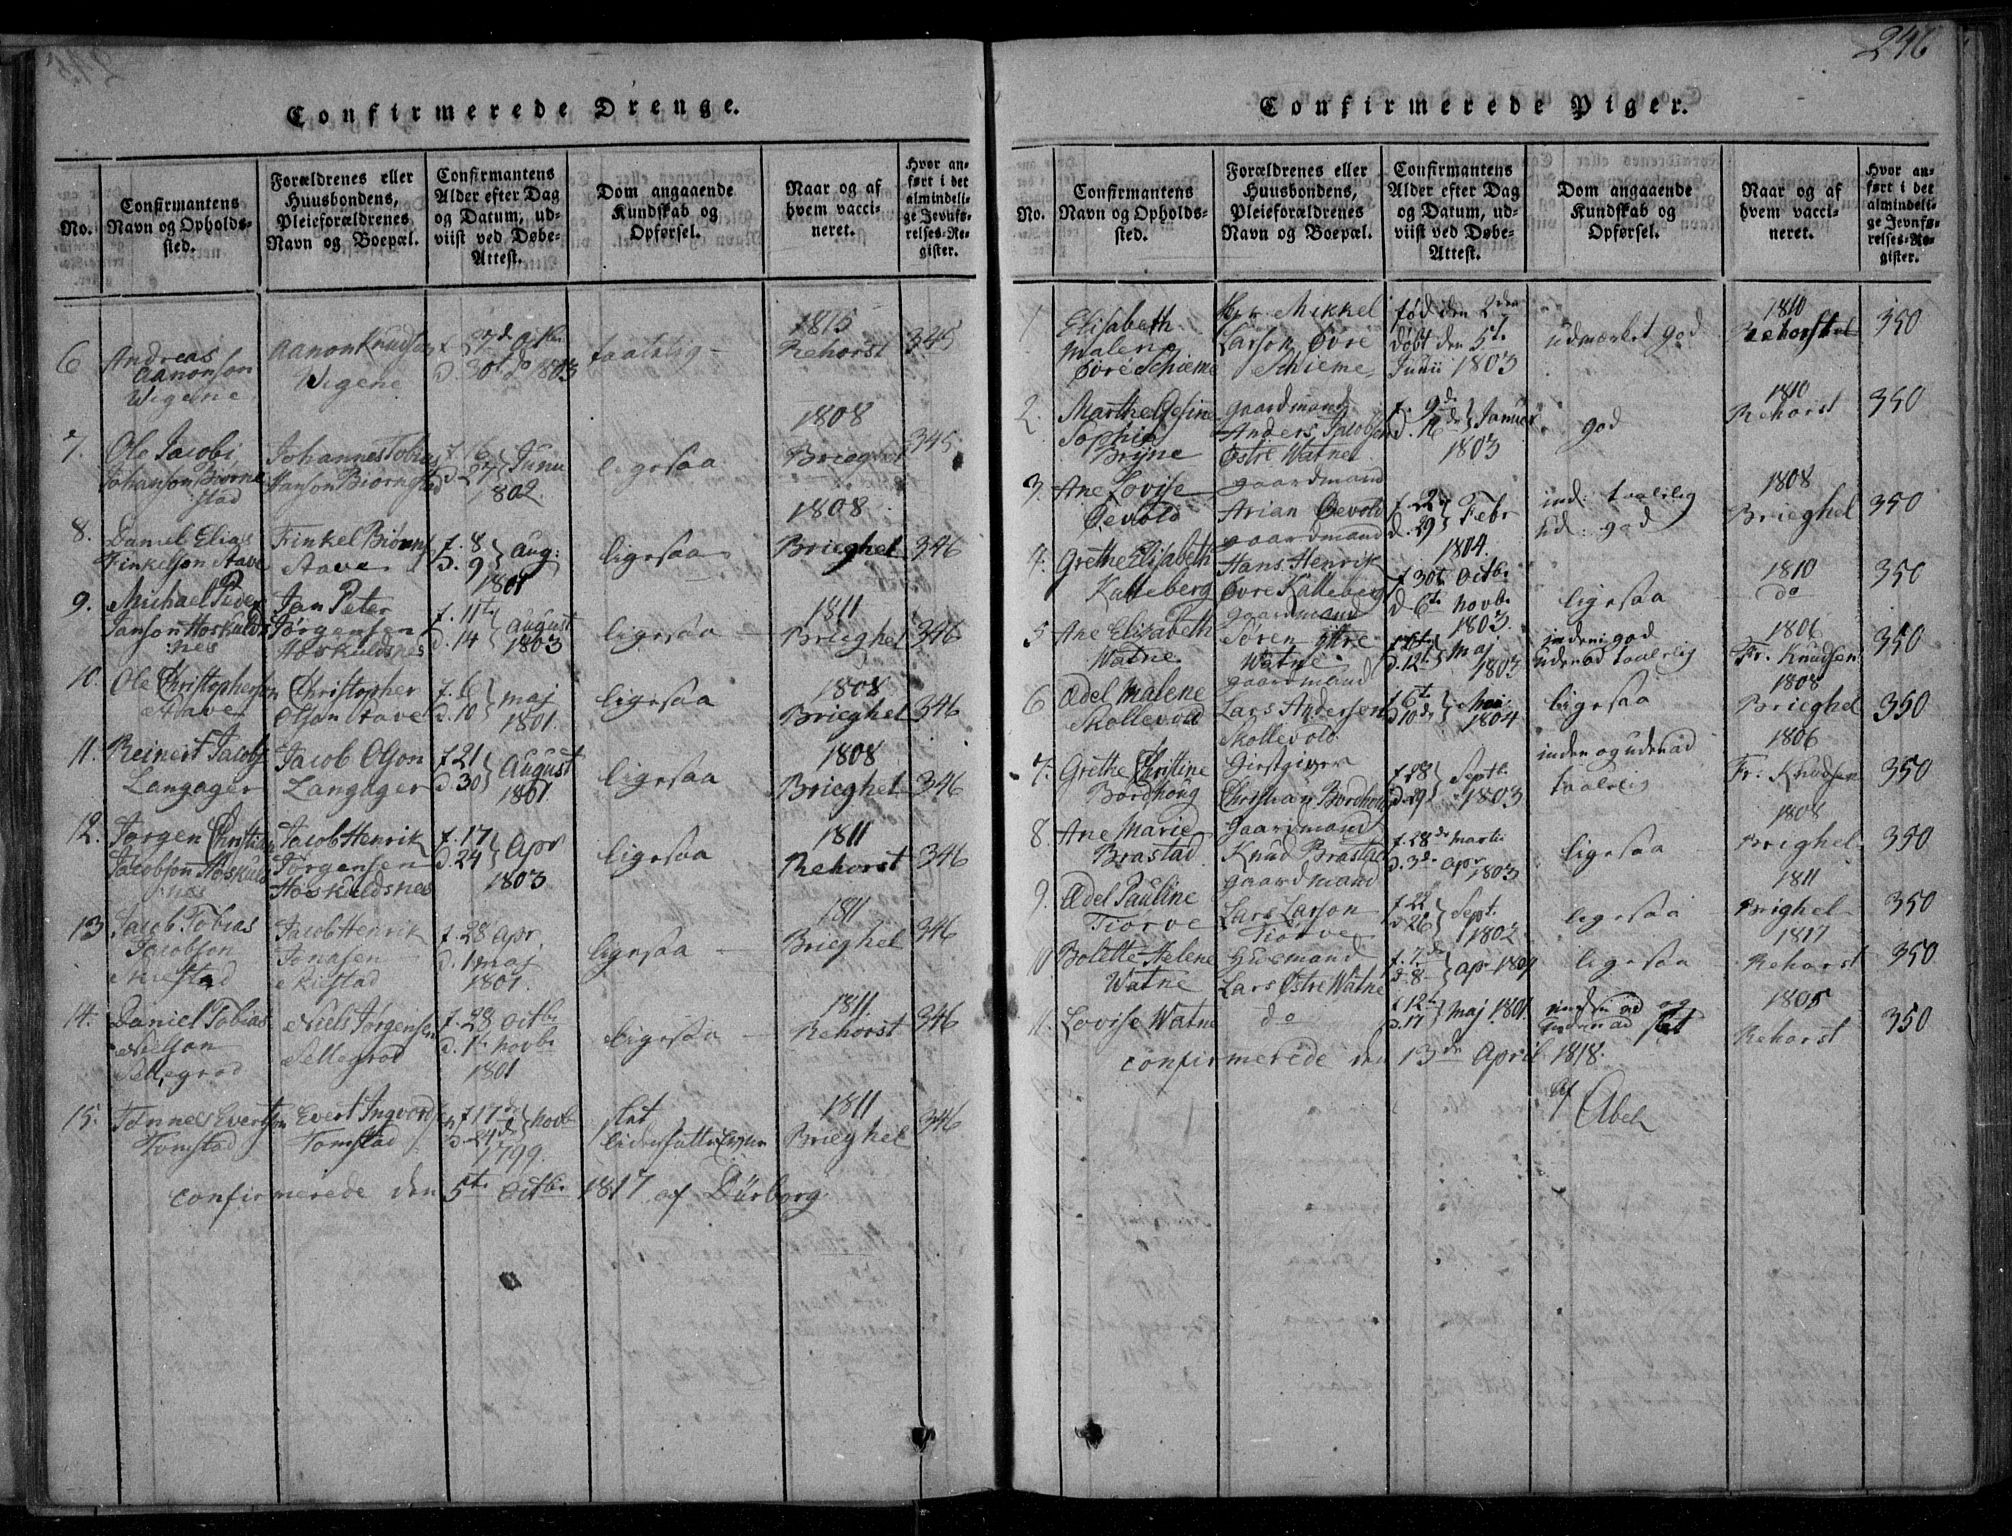 246
Confirmerede Drenge.
No.
Confirmantens
Navn og Opholds-
sted.
Forældrenes eller
Huusbondens,
Pleieforældrenes
Navn og Boepæl.
Confirmantens
Alder efter Dag
og Datum, ud-
viist ved Døbe-
Attest.
Dom angaaende
Kundskab og
Opførsel.
Naar og af
hvem vacci-
neret.
Hvor an-
ført i det
almindeli-
ge Jevnfø-
relses-Re-
gister.
6
Andreas
Aanonson
Wigene
Aanon Knudson
Wigene
d. 30t do 1803
taalelig
1815
Rehorst
345
7.
Ole Jacobi
Johanson Biørne
stad
Johannes Tobias
Hanson Biørnestad
f. 16
d. 27 Junii
1802.
ligesaa
1808
Brieghel
345
8.
Daniel Elias
Finkelson Stave
Finkel Biørn
Stave
f. 8
d. 9 Aug:
1801
ligesaa
1808
Brieghel
346
9.
Michael Peder
Janson Høskulds
nes
Jan Peter
Jørgensen
Høskuldsnes
f. 11te
d. 14 August
1803
ligesaa
1811
Brieghel
346
10.
Ole Christophersen
Stave
Christopher
Olson Stave
f. 6
d. 10 maj
1801.
ligesaa
1808
Brieghel
346
11.
Reinert Jacobs
Langager
Jacob Olson
Langager
f. 21
d. 30 August
1801.
ligesaa
1808
Brieghel
346
12.
Jørgen Christian
Jacobson Høskuld
nes
Jacob Henrik
Jørgensen
Høskuldsnes
f. 17
d. 24 Apr
1803
ligesaa
1811
Rehorst
346
13
Jacob Tobias
Jacobson
Jacob Henrik
Jonasen
f. 28 apr.
d. 1 maj
1801.
ligesaa
1811
Brieghel
346
14.
Daniel Tobias
Nielson
Sellegrod
Niels Jørgensen
Sellegrod
f. 28 octbr
d. 1te novbr
1801
ligesaa
1811
Rehorst
346
15.
Tønnes Evertson
Tomstad
Evert Ingvord
Tomstad
f. 17de
d. 24de novb
1799.
slet
1811
Brieghel
346
confirmerede den 5te Octbr 1817 af Dürborg
Confirmerede Piger.
No.
Confirmantens
Navn og Opholds-
sted.
Forældrenes eller
Huusbondens,
Pleieforældrenes
Navn og Boepæl.
Confirmantens
Alder efter Dag
og Datum, ud-
viist ved Døbe-
Attest.
Dom angaaende
Kundskab og
Opførsel.
Naar og af
hvem vacci-
neret.
Hvor an-
ført i det
almindeli-
ge Jevnfø-
relses-Re-
gister.
1
Elisabeth
Malene
Øvre Schieme
Mikkel
Larson Øvre
Schieme
fød den 2den
døbt den 5te
Junii 1803
udmærket god
1810
Rehorst
350
2.
Marthe Gesine
Sophia
Bryne
gaardmand
Anders Jacobsen
Østre Watne
f. 9de
d. 16de Januar
1803
god
1810
Rehorst
350
3.
Ane Lovise
Øevold
gaardmand
Arian Øevold
f. 2
d. 29 Febr
1804.
ind: taalelig
ud: god
1808
Brieghel
350
4.
Grethe Elisabeth
Kalleberg
gaardmand
Hans Henrik
Øvre Kalleberg
f. 30t octbr
d. 6te novbr
1803.
ligesaa
1810
do
350
5
Ane Elizabeth
Watne
gaardmand
Søren
Watne
d. 12te maj
1803
indeni god
udenad taalelig
1806
Fr. Knudsen
350
6
Ædel Malene
Skollevold
gaardmand
Lars Andersen
Skollevold
f. 6te
d. 10de Mai
1804
ligesaa
1808
Brieghel
350
7.
Grethe Christine
Bordhoug
Giestgiver
Christian Bordhoug
f. 18
d. 29 Septb.
1803
inden og udenad
taalelig
1806
Fr. Knudsen
350
8.
Ane Marie
Brastad
gaardmand
Knud Brastad
f. 28de martii
d. 3de apr
1803
ligesaa
1808
Brighel
350
9.
Ædel Pauline
Tiørve
gaardmand
Lars Larson
Tiørve
f. 22
d. 26 Sept.
1802
ligesaa
1811
Brighel
350
10
Bolette Helene
Watne
Huusmand
Lars Østre Watne
f. 7de
d. 8 apr 1804
ligesaa
1817
Rehorst
350
11.
Lovise Watne
do
f. 12te
d. 17 Maj 1801.
inden ad og
uden ad slet
1805
Rehorst
350
confirmerede den 13de April 1818.
af
Abel